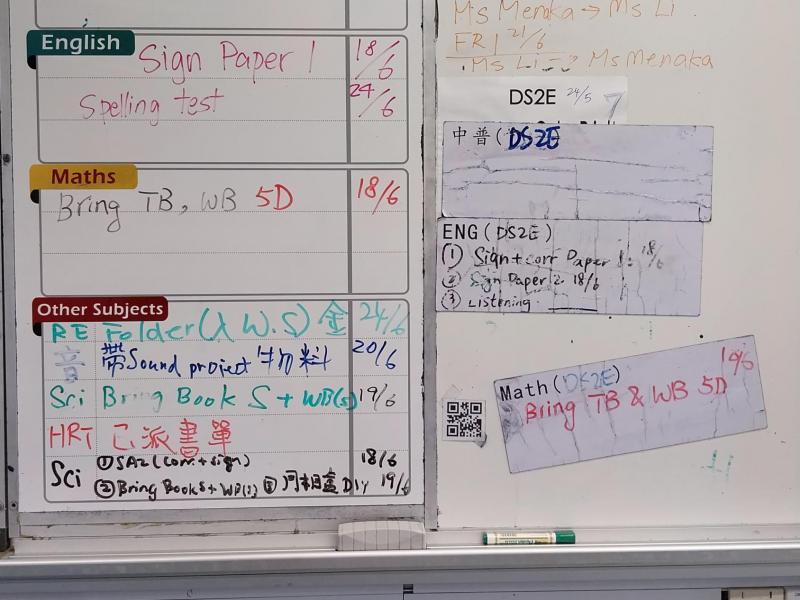 English
Sign Paper 1 18/6
Spelling test 24/6
Maths
Bring TB, WB 5D 18/6
Other Subjects
RE Folder(入 W.S) 金 24/6
音 帶Sound project 物料 20/6
Sci Bring Book 5 + WB(s) 19/6
HRT 已派書單
Sci ①SA2 (corr.+sign) 18/6
②Bring Book5+WB(s) 19/6
Ms Menaka → Ms Li
FRI 21/6
Ms Li → Ms Menaka
DS2E 24/5
中普(DS2E
ENG(DS2E)
① Sign+corr Paper 1: 18/6
② Sign Paper 2 18/6
③ Listening
Math(DS2E) 19/6
Bring TB & WB 5D